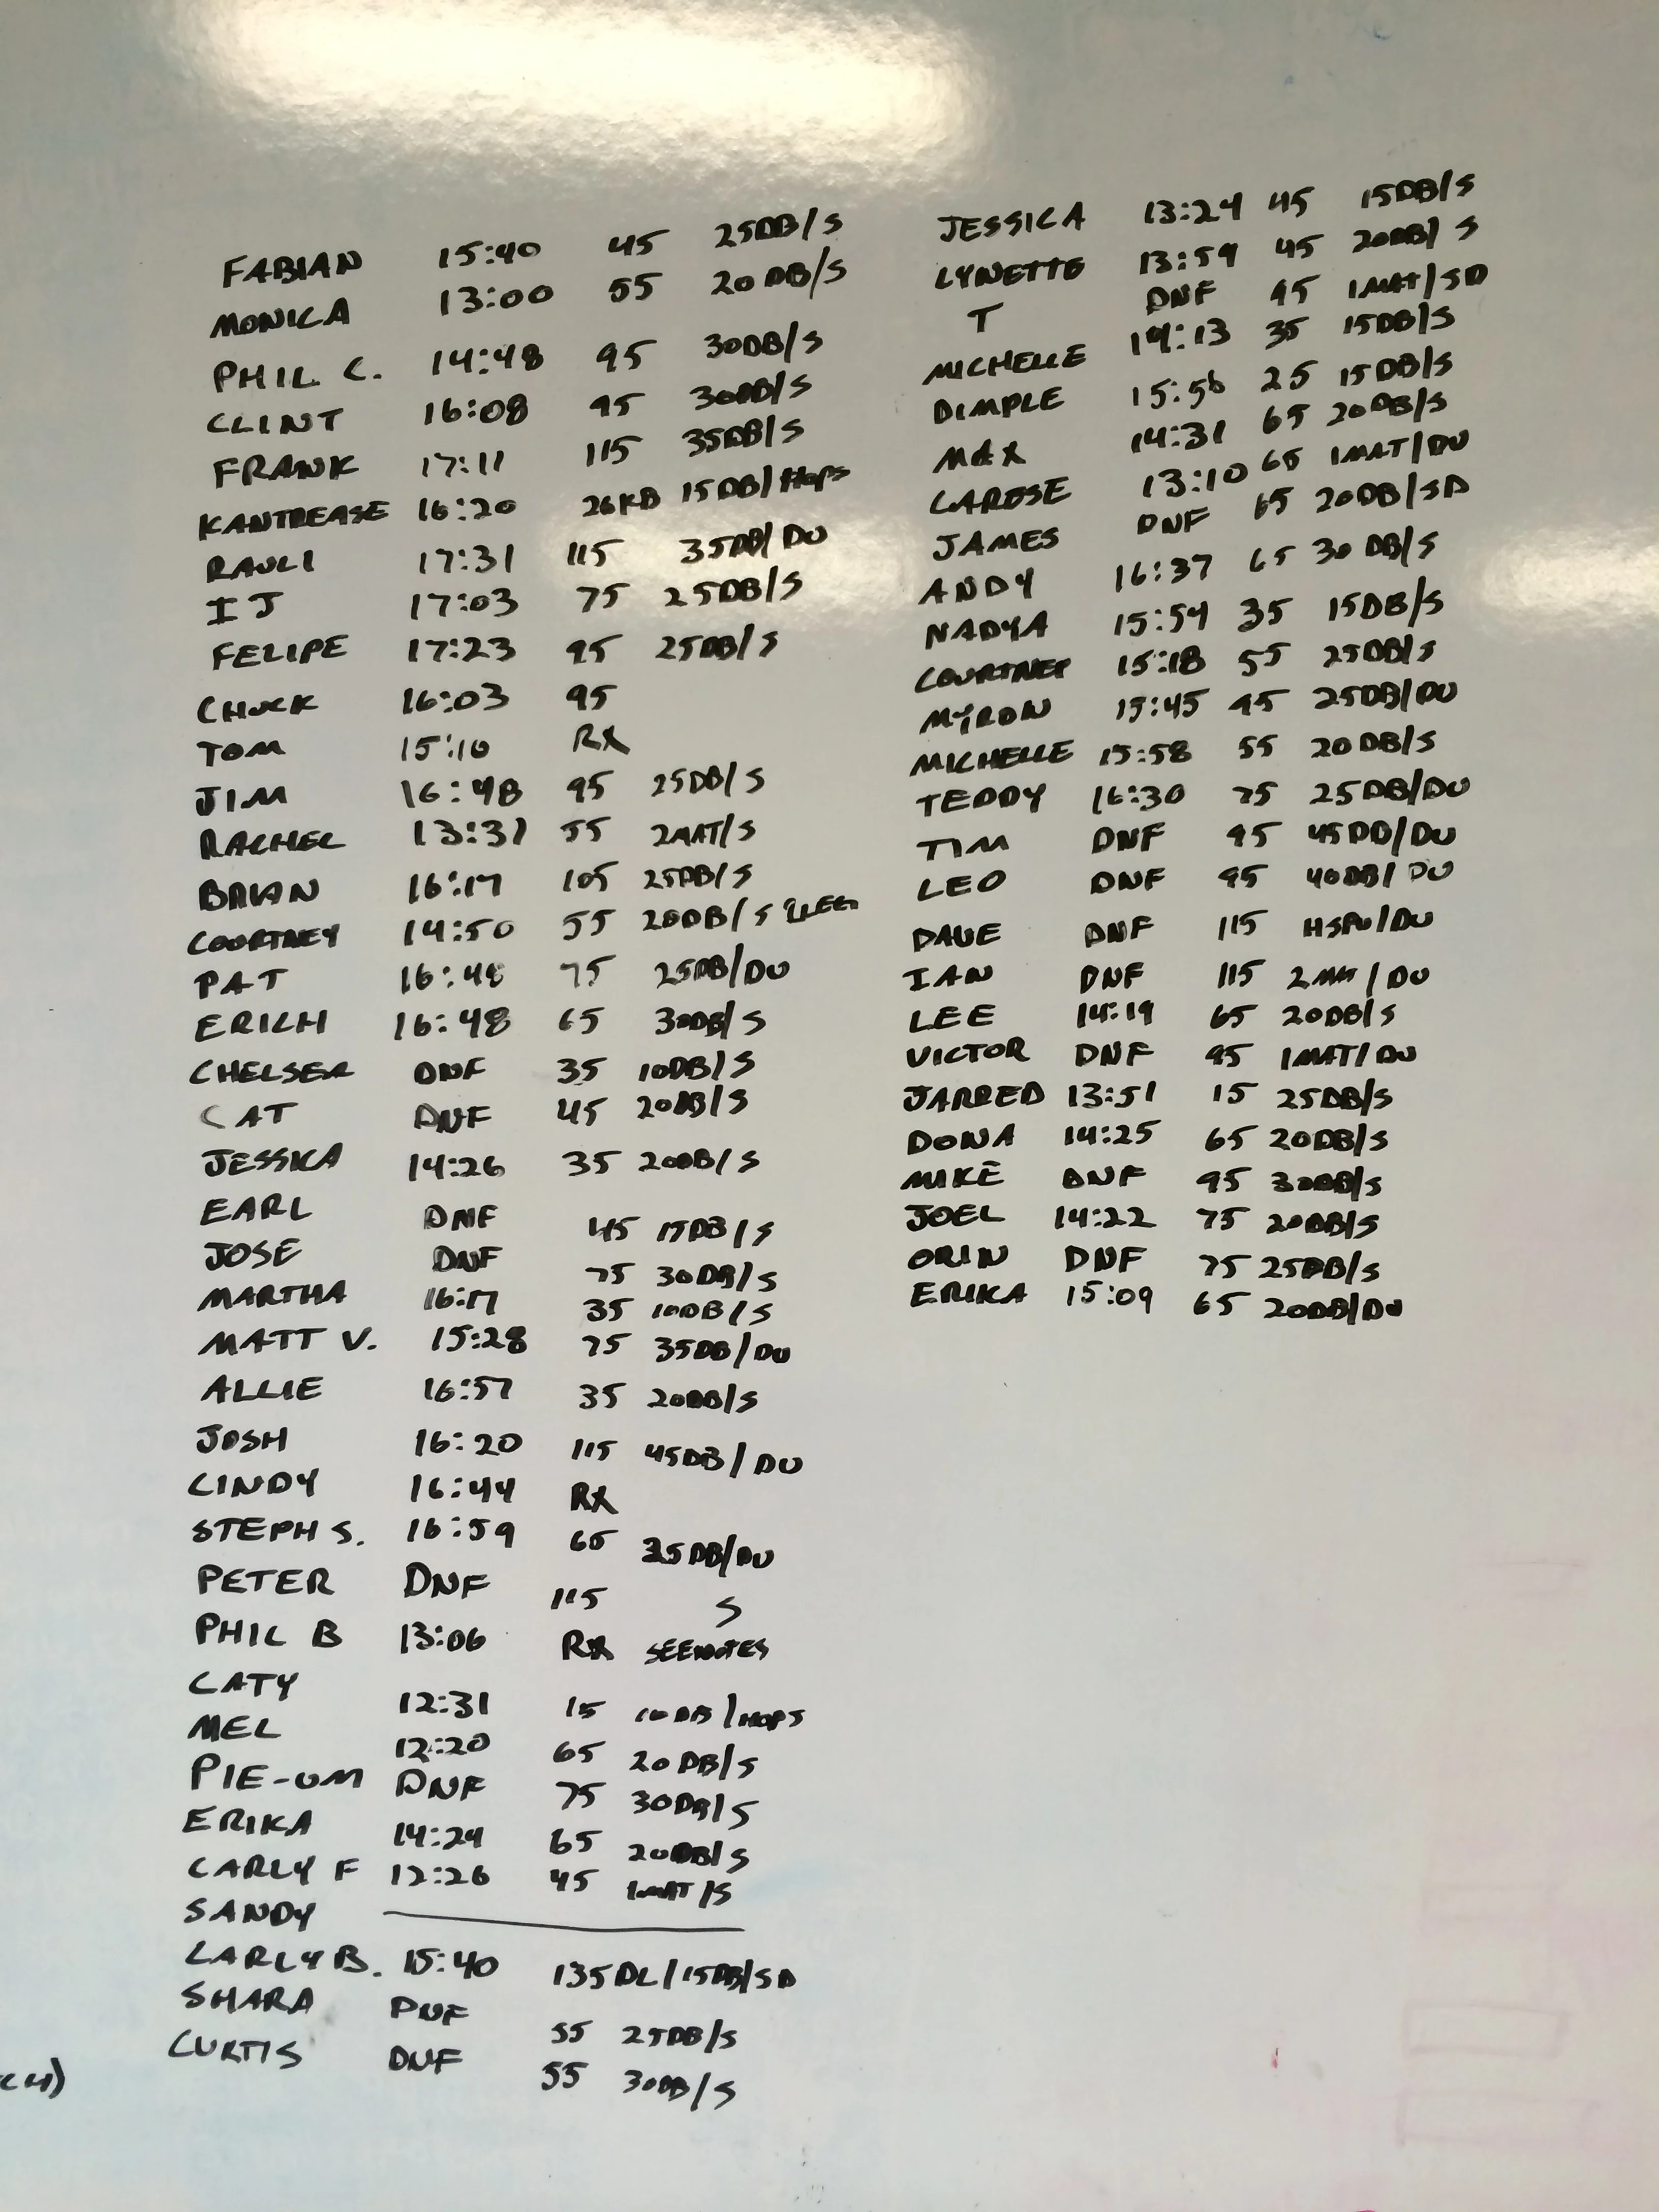 FABIAN 15:40 45 25DB/S
MONICA 13:00 55 20DB/S
PHIL C. 14:48 95 30DB/S
CLINT 16:08 95 30DB/S
FRANK 17:11 115 35DB/S
KANTREASE 16:20 26KB 15DB/HOPS
RAULI 17:31 115 35DB/DU
IJ 17:03 75 25DB/S
FELIPE 17:23 95 25DB/S
CHUCK 16:03 95
TOM 15:10 RX
JIM 16:48 95 25DB/S
RACHEL 13:31 55 2MAT/S
BRIAN 16:17 105 25DB/S
COURTNEY 14:50 55 20DB/S
PAT 16:48 75 25DB/DU
ERICH 16:48 65 30DB/S
CHELSEA DNF 35 10DB/S
CAT DNF 45 20DB/S
JESSICA 14:26 35 20DB/S
EARL DNF 45 15DB/S
JOSE DNF 75 30DB/S
MARTHA 16:17 35 10DB/S
MATT V. 15:28 75 35DB/DU
ALLIE 16:57 35 20DB/S
JOSH 16:20 115 45DB/DU
CINDY 16:44 RX
STEPH S. 16:59 65 35DB/DU
PETER DNF 115 S
PHIL B 13:06 RX SEE NOTES
CATY 12:31 15 10DB/HOPS
MEL 12:20 65 20DB/S
PIE-OM DNF 75 30DB/S
ERIKA 14:24 65 20DB/S
CARLY F 12:26 45 1MAT/S
SANDY
CARLY B. 15:40 135DL/15DB/SD
SHARA DNF 55 25DB/S
CURTIS DNF 55 30DB/S
JESSICA 13:24 45 15DB/S
LYNETTE 13:59 45 20DB/S
T DNF 95 1MAT/SD
MICHELLE 14:13 35 15DB/S
DIMPLE 15:56 25 15DB/S
MAX 14:31 65 20DB/S
CARESE 13:10 65 1MAT/DU
JAMES DNF 65 20DB/SD
ANDY 16:37 65 30DB/S
NADYA 15:54 35 15DB/S
COURTNEY 15:18 55 25DB/S
MYRON 15:45 95 25DB/DU
MICHELLE 15:58 55 20DB/S
TEDDY 16:30 75 25DB/DU
TIM DNF 95 45DB/DU
LEO DNF 95 40DB/DU
DAVE DNF 115 HSPU/DU
IAN DNF 115 2MAT/DU
LEE 14:19 65 20DB/S
VICTOR DNF 95 1MAT/DU
JARRED 13:51 15 25DB/S
DONA 14:25 65 20DB/S
MIKE DNF 95 30DB/S
JOEL 14:22 75 20DB/S
ORIN DNF 75 25DB/S
ERIKA 15:09 65 20DB/DU